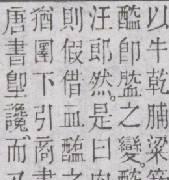 以牛乾脯粱
醢卽之變
汪郎然。是曰
則假借血醢之
猶圉下引商書
唐書堲讒。而